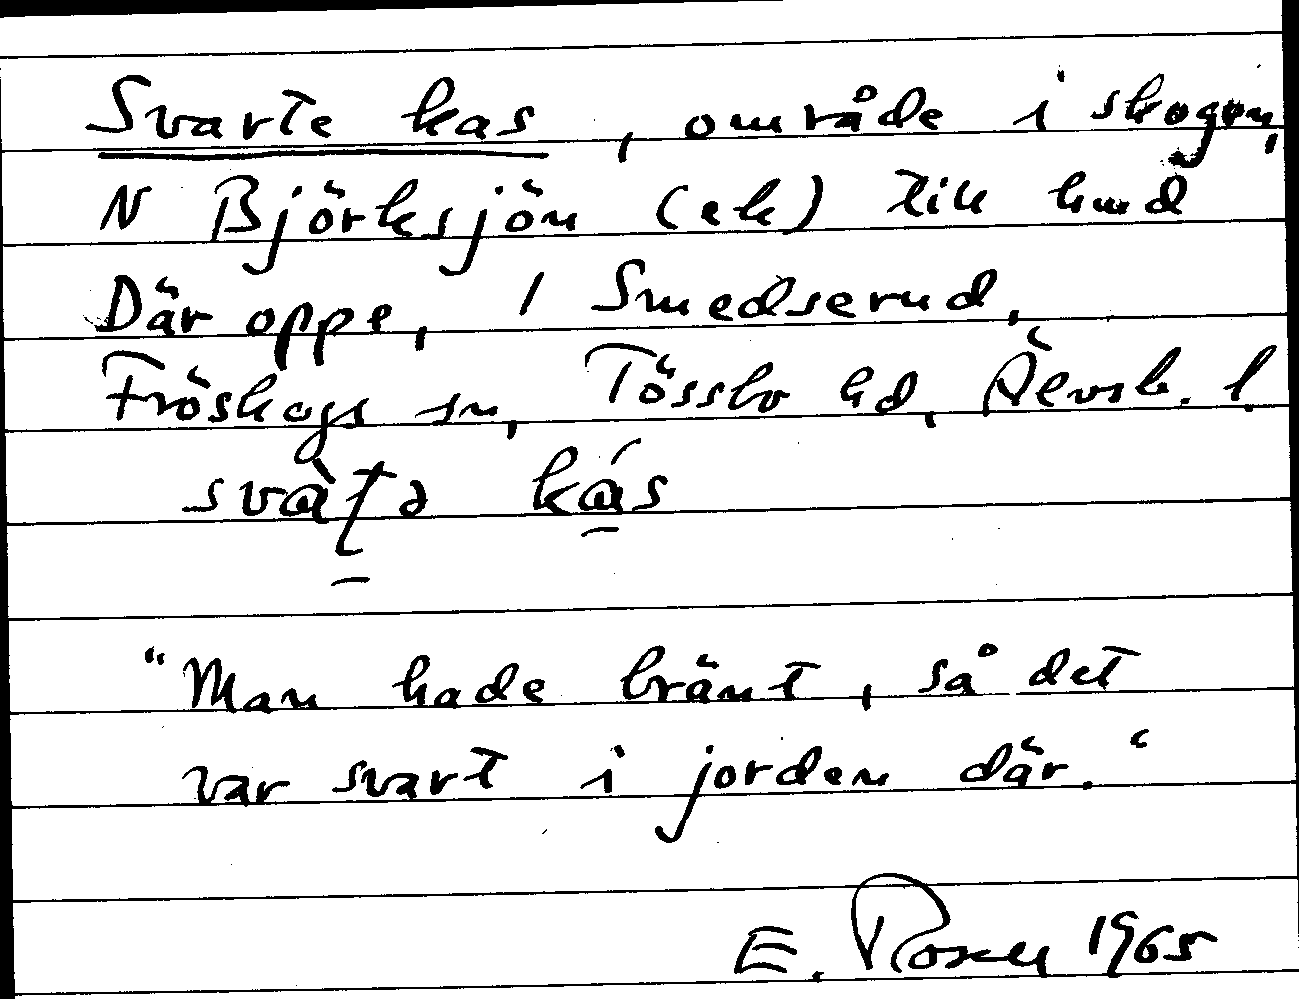 Svarte kas, område i skogen,
N Björksjön (ek) till hmd
Där oppe, 1 Smedserud,
Fröskogs sn, Tössbo hd, Älvsb. l.
svàʈə kás
"Man hade bränt, så det
var svart i jorden där."
E. Rosen 1965